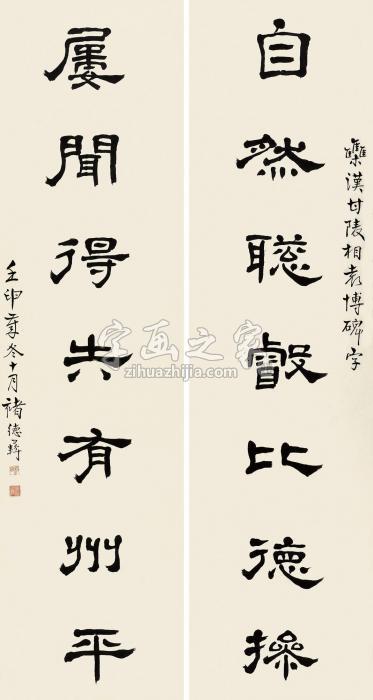 雧漢甘陵相袁博碑字
自然聡叡比德操
屢聞得失有州平
壬申孟冬十月褚德彝
字画之家
www.zihuazhijia.com